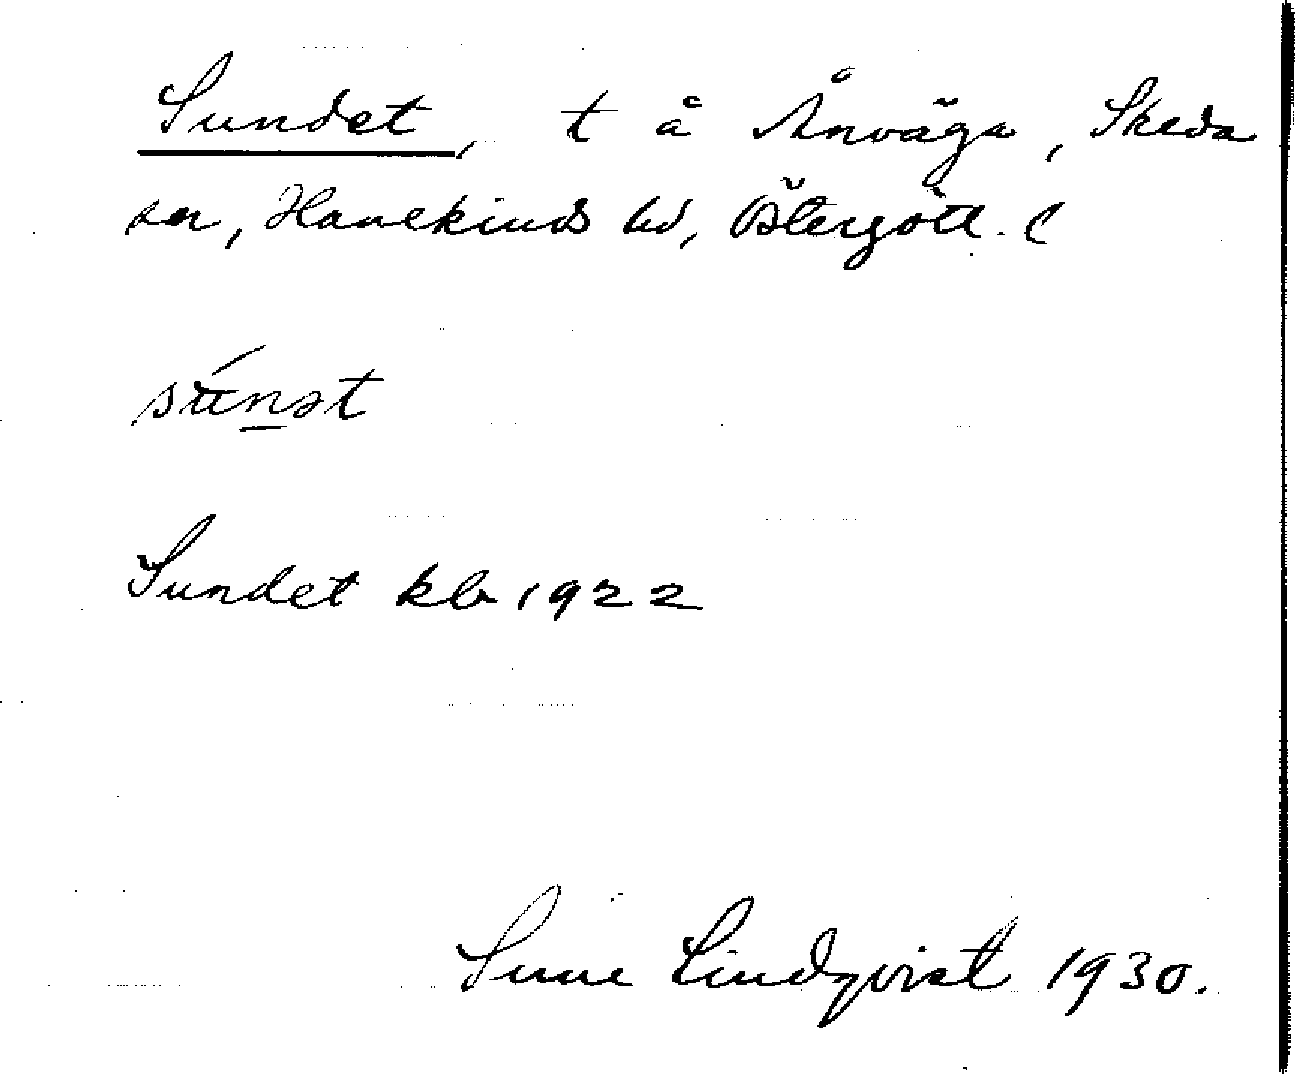 Sundet, t å Ånväga, Skeda
sn, Hanekinds hd, Östergötl. (
su̍nət
Sundet kb 1922
Sune Lindqvist 1930.